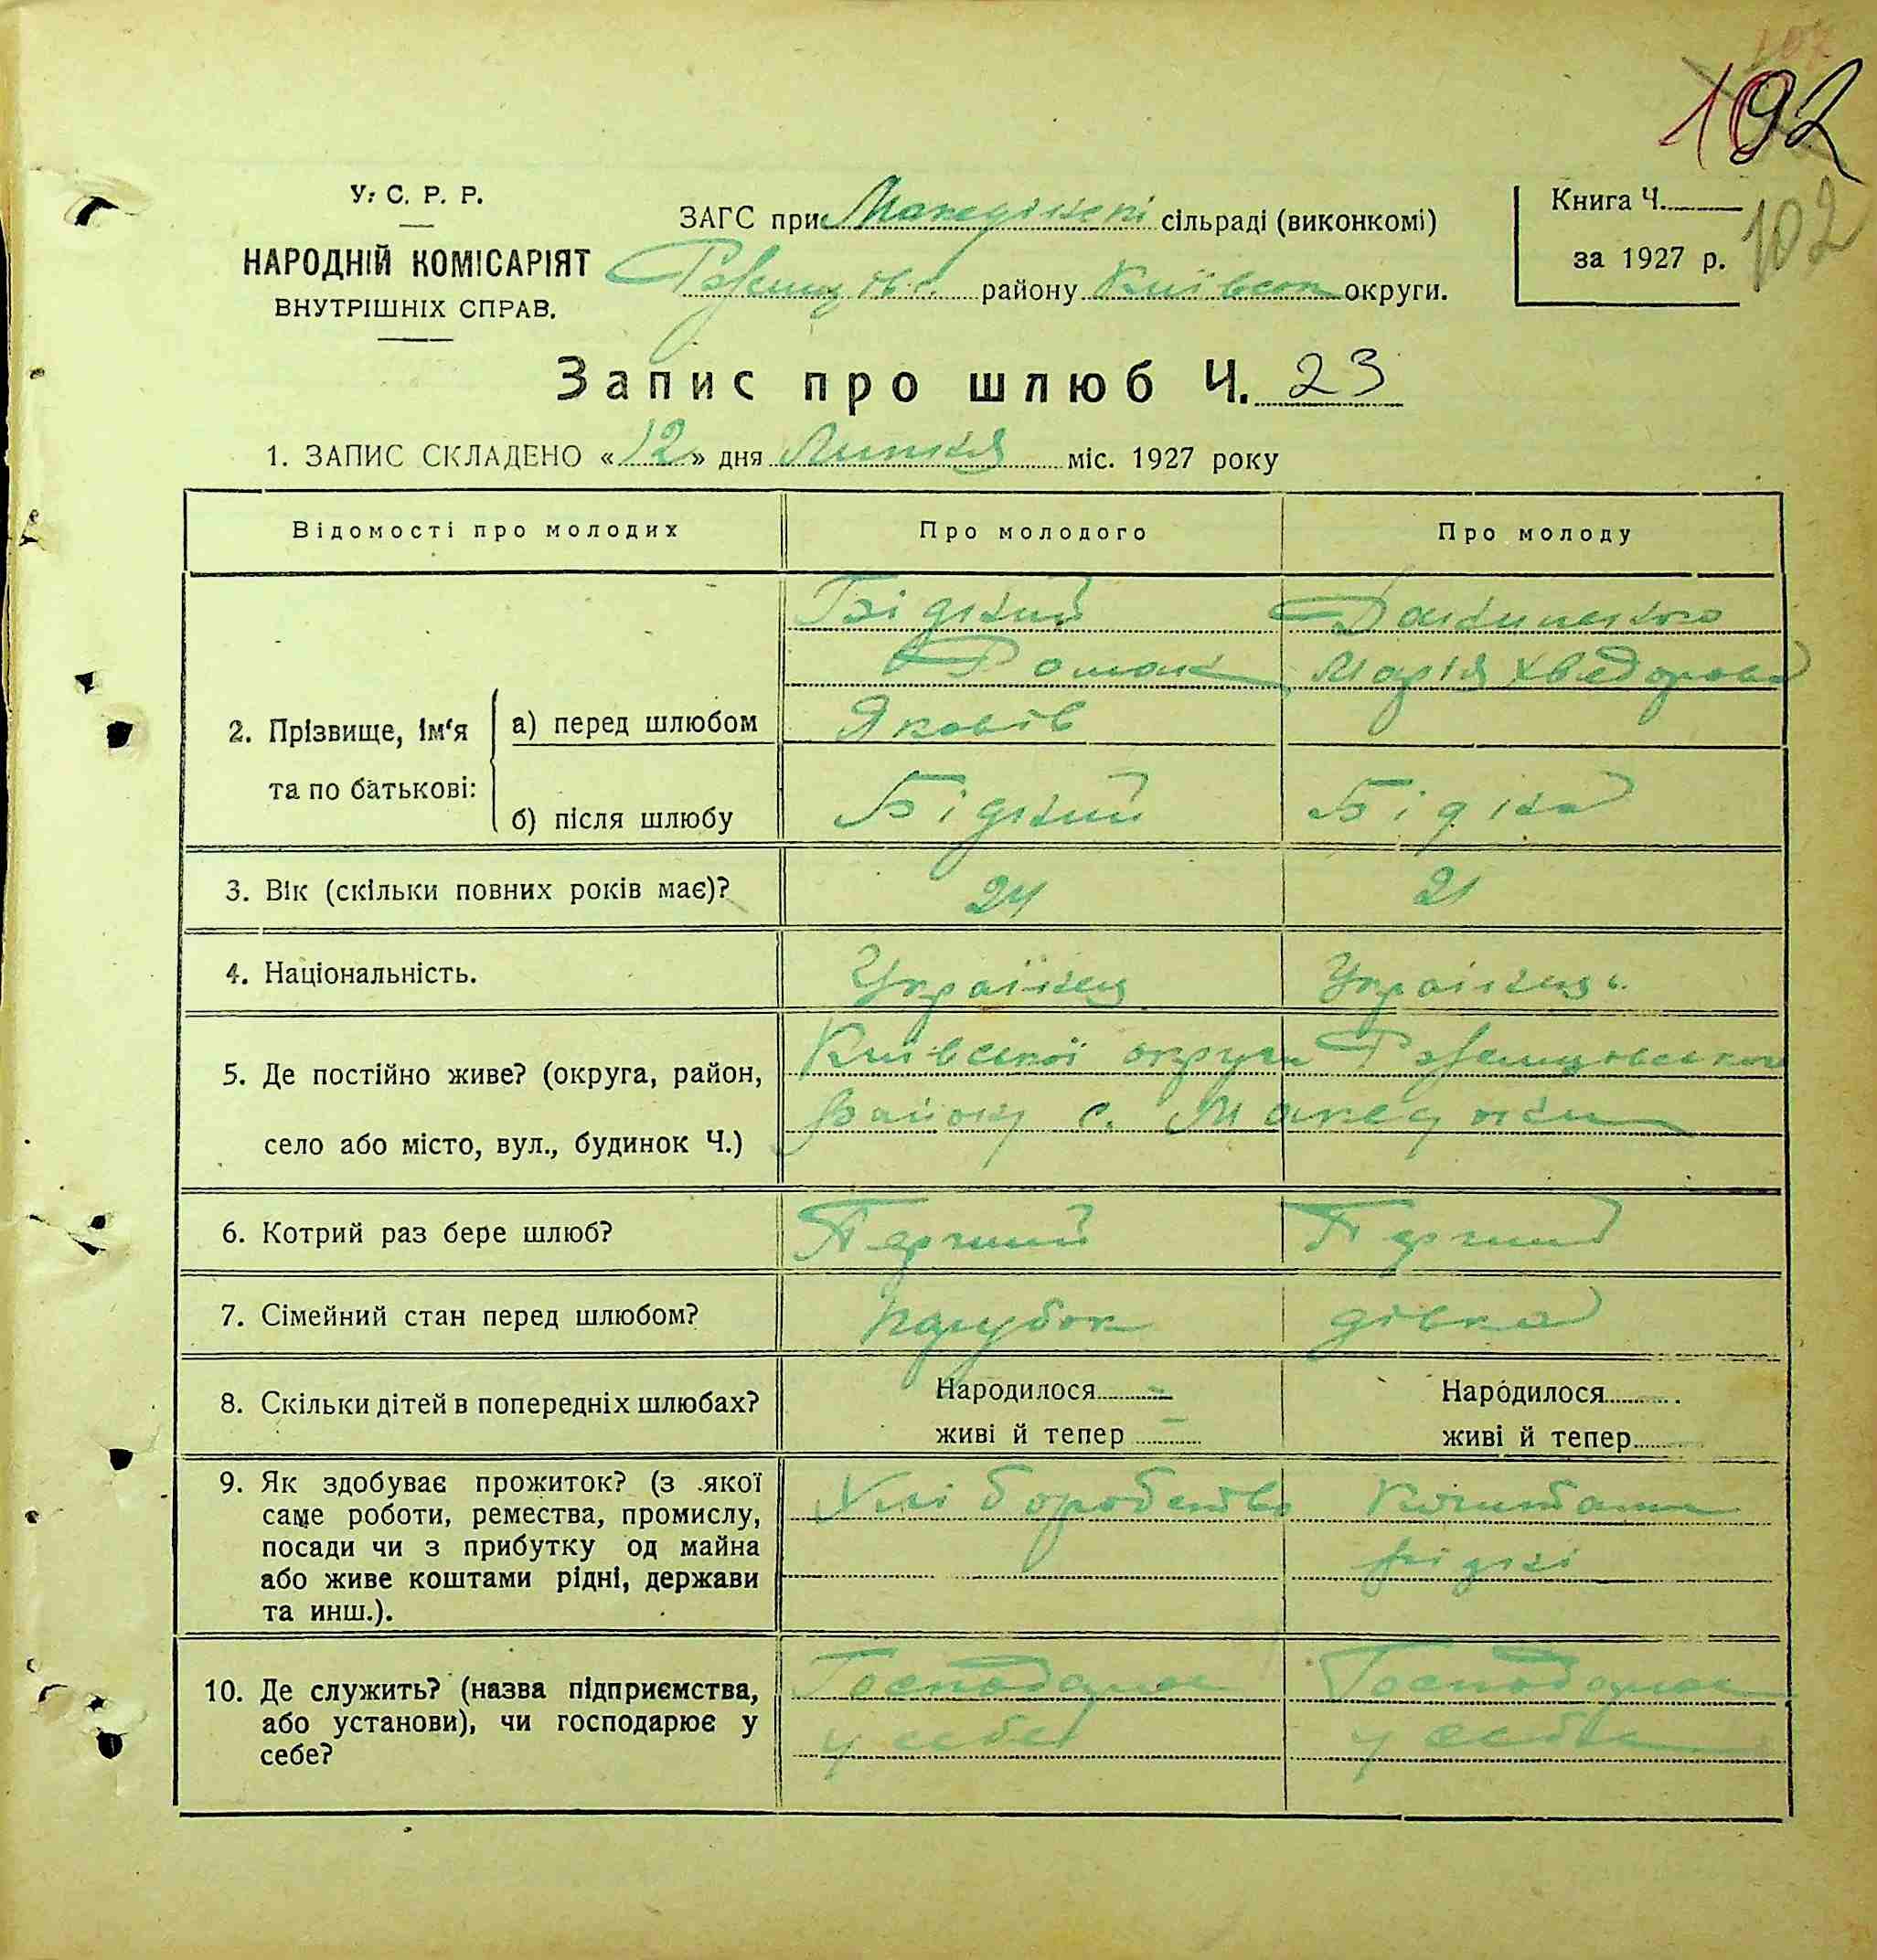 192
102
У. С. Р. Р.
НАРОДНІЙ КОМІСАРІЯТ
ВНУТРІШНІХ СПРАВ.
ЗАГС при Македонскі сільраді (виконкомі)
району Київськ округи.
Книга Ч.
за 1927 р.
Запис про шлюб Ч. 23
1. ЗАПИС СКЛАДЕНО «12» дня Липня міс. 1927 року
Відомості про молодих
Про молодого
Про молоду
2. Прізвище, ім'я та по батькові:
а) перед шлюбом
Бідний
Роман
Яковів
Марія Хведорова
б) після шлюбу
Бідний
Бідна
3. Вік (скільки повних років має)?
24
21
4. Національність.
Українец
Українець
5. Де постійно живе? (округа, район,
село або місто, вул., будинок Ч.)
Київської округи Ржищівського
району с. Македони
6. Котрий раз бере шлюб?
Перший
Перший
7. Сімейний стан перед шлюбом?
парубок
дівка
8. Скільки дітей в попередніх шлюбах?
Народилося -
живі й тепер -
Народилося -
живі й тепер -
9. Як здобуває прожиток? (з якої
саме роботи, ремества, промислу,
посади чи з прибутку од майна
або живе коштами рідні, держави
та инш.).
Хліборобство
Коштами
рідні
10. Де служить? (назва підприємства,
або установи), чи господарює у
себе?
Господарює
у себе
Господарює
у себе